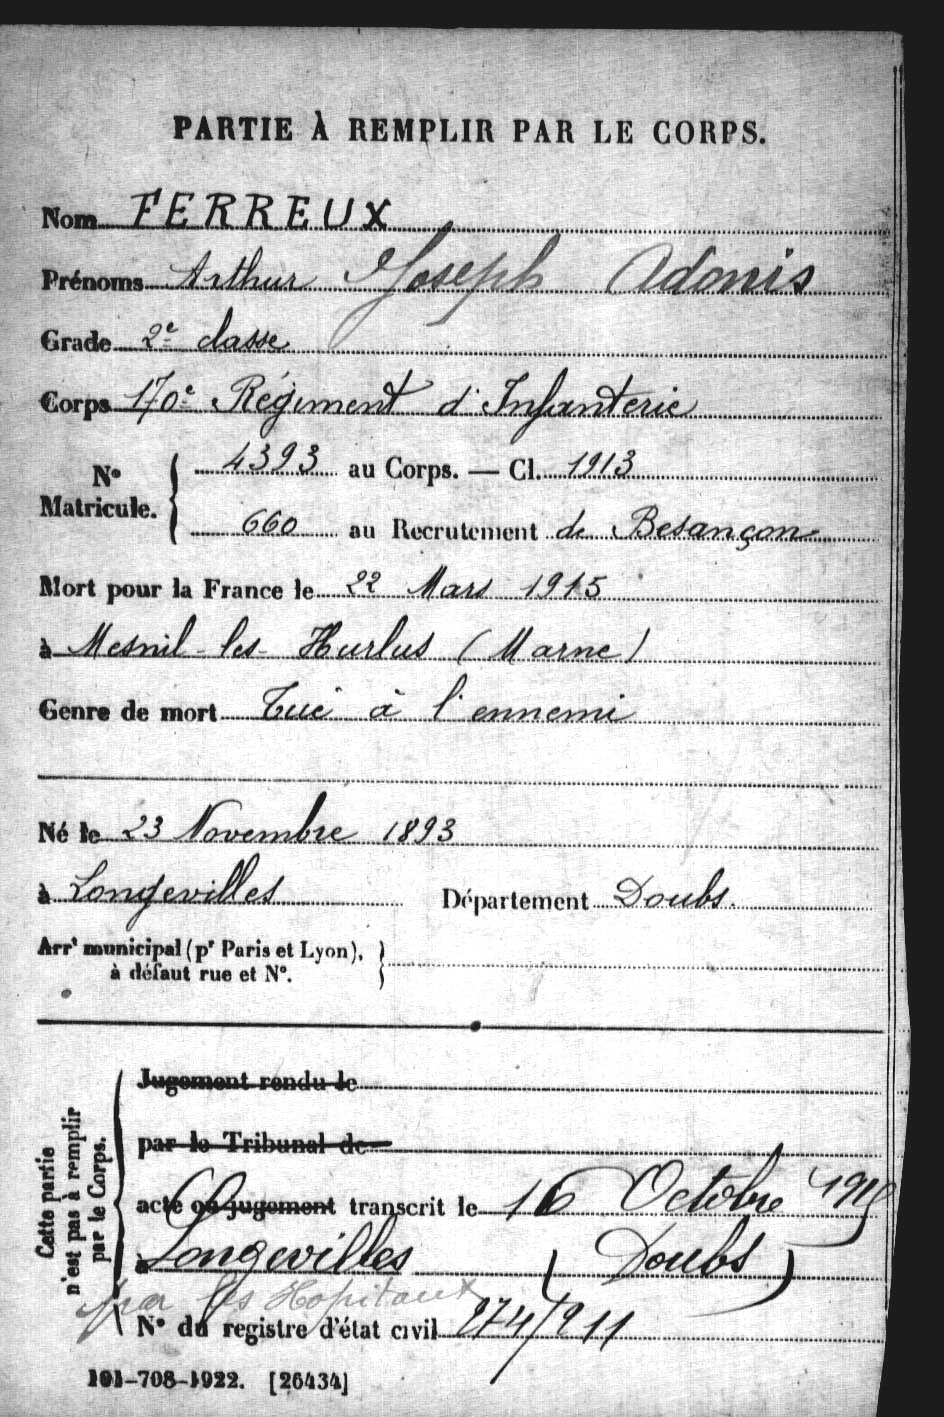 PARTIE À REMPLIR PAR LE CORPS.
Nom FERREUX
Prénoms Arthur Joseph Adonis
Grade 2e classe
Corps 170e Régiment d'Infanterie
No Matricule. 4393 au Corps. — Cl. 1913
660 au Recrutement de Besançon
Mort pour la France le 22 Mars 1915
à Mesnil-les-Hurlus (Marne)
Genre de mort Tué à l'ennemi
Né le 23 Novembre 1893
à Longevilles Département Doubs.
Arrt municipal (pr Paris et Lyon), à défaut rue et No.
Cette partie n'est pas à remplir par le Corps.
Jugement rendu le
par le Tribunal de
acte ou jugement transcrit le 16 Octobre
à Longevilles (Doubs)
par les Hopitaux
No du registre d'état civil 274/211
101-708-1922. [26434]